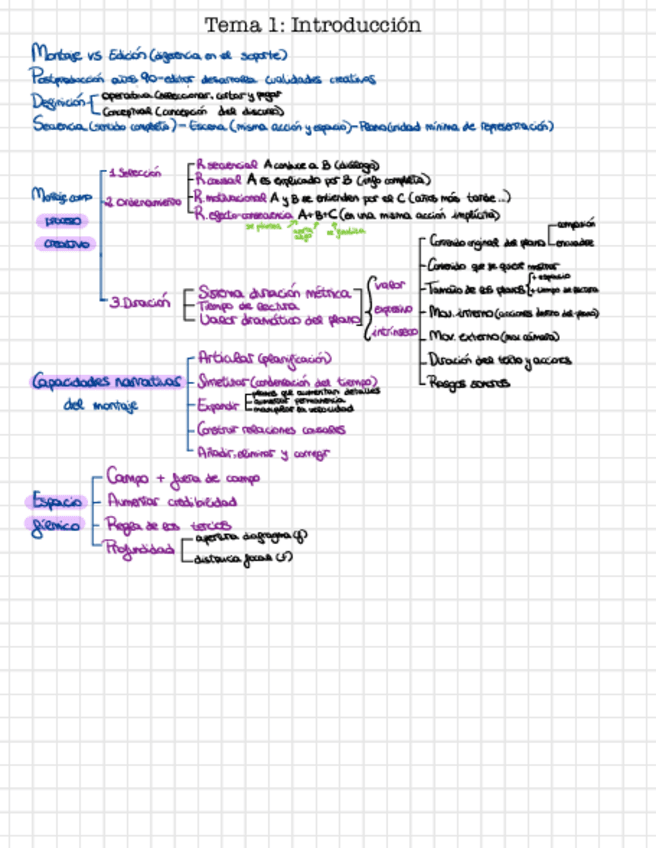 Tema 1: Introducción
Montaje vs Edición (diferencia en el soporte)
Postproducción años 90-editor desarrolla cualidades creativas
Definición
operativa (seleccionar, cortar y pegar
conceptual (concepción del discurso)
Secuencia (sentido completo) - Escena (misma acción y espacio) - Plano (unidad mínima de representación)
Montaje como
proceso
creativo
1. Selección
2 Ordenamiento
R. secuencial A conduce a B (diálogo)
R. causal A es explicado por B (info completa)
R. motivacional A y B se entienden por el C (años más tarde...)
R. efecto-consecuencia A+B+C (en una misma acción implícita)
se plantea
3. Duración
Sistema duración métrica
Tiempo de lectura
Valor dramático del plano
valor
expresivo
intrínseco
Contenido original del plano
composición
encuadre
Contenido que se quiere mostrar
Tamaño de los planos
+ espacio
+ tiempo de lectura
Mov. interno (acciones dentro del plano)
Mov. externo (mov cámara)
Duración del texto y acciones
Rasgos sonoros
Capacidades narrativas
del montaje
Articular (planificación)
Sintetizar (condensación del tiempo)
Expandir
planos que aumentan detalles
aumentar permanencia
manipular la velocidad
Construir relaciones causales
Añadir, eliminar y corregir
Espacio
fílmico
Campo + fuera de campo
Aumentar credibilidad
Regla de los tercios
Profundidad
apertura diafragma (f)
distancia focal (f)